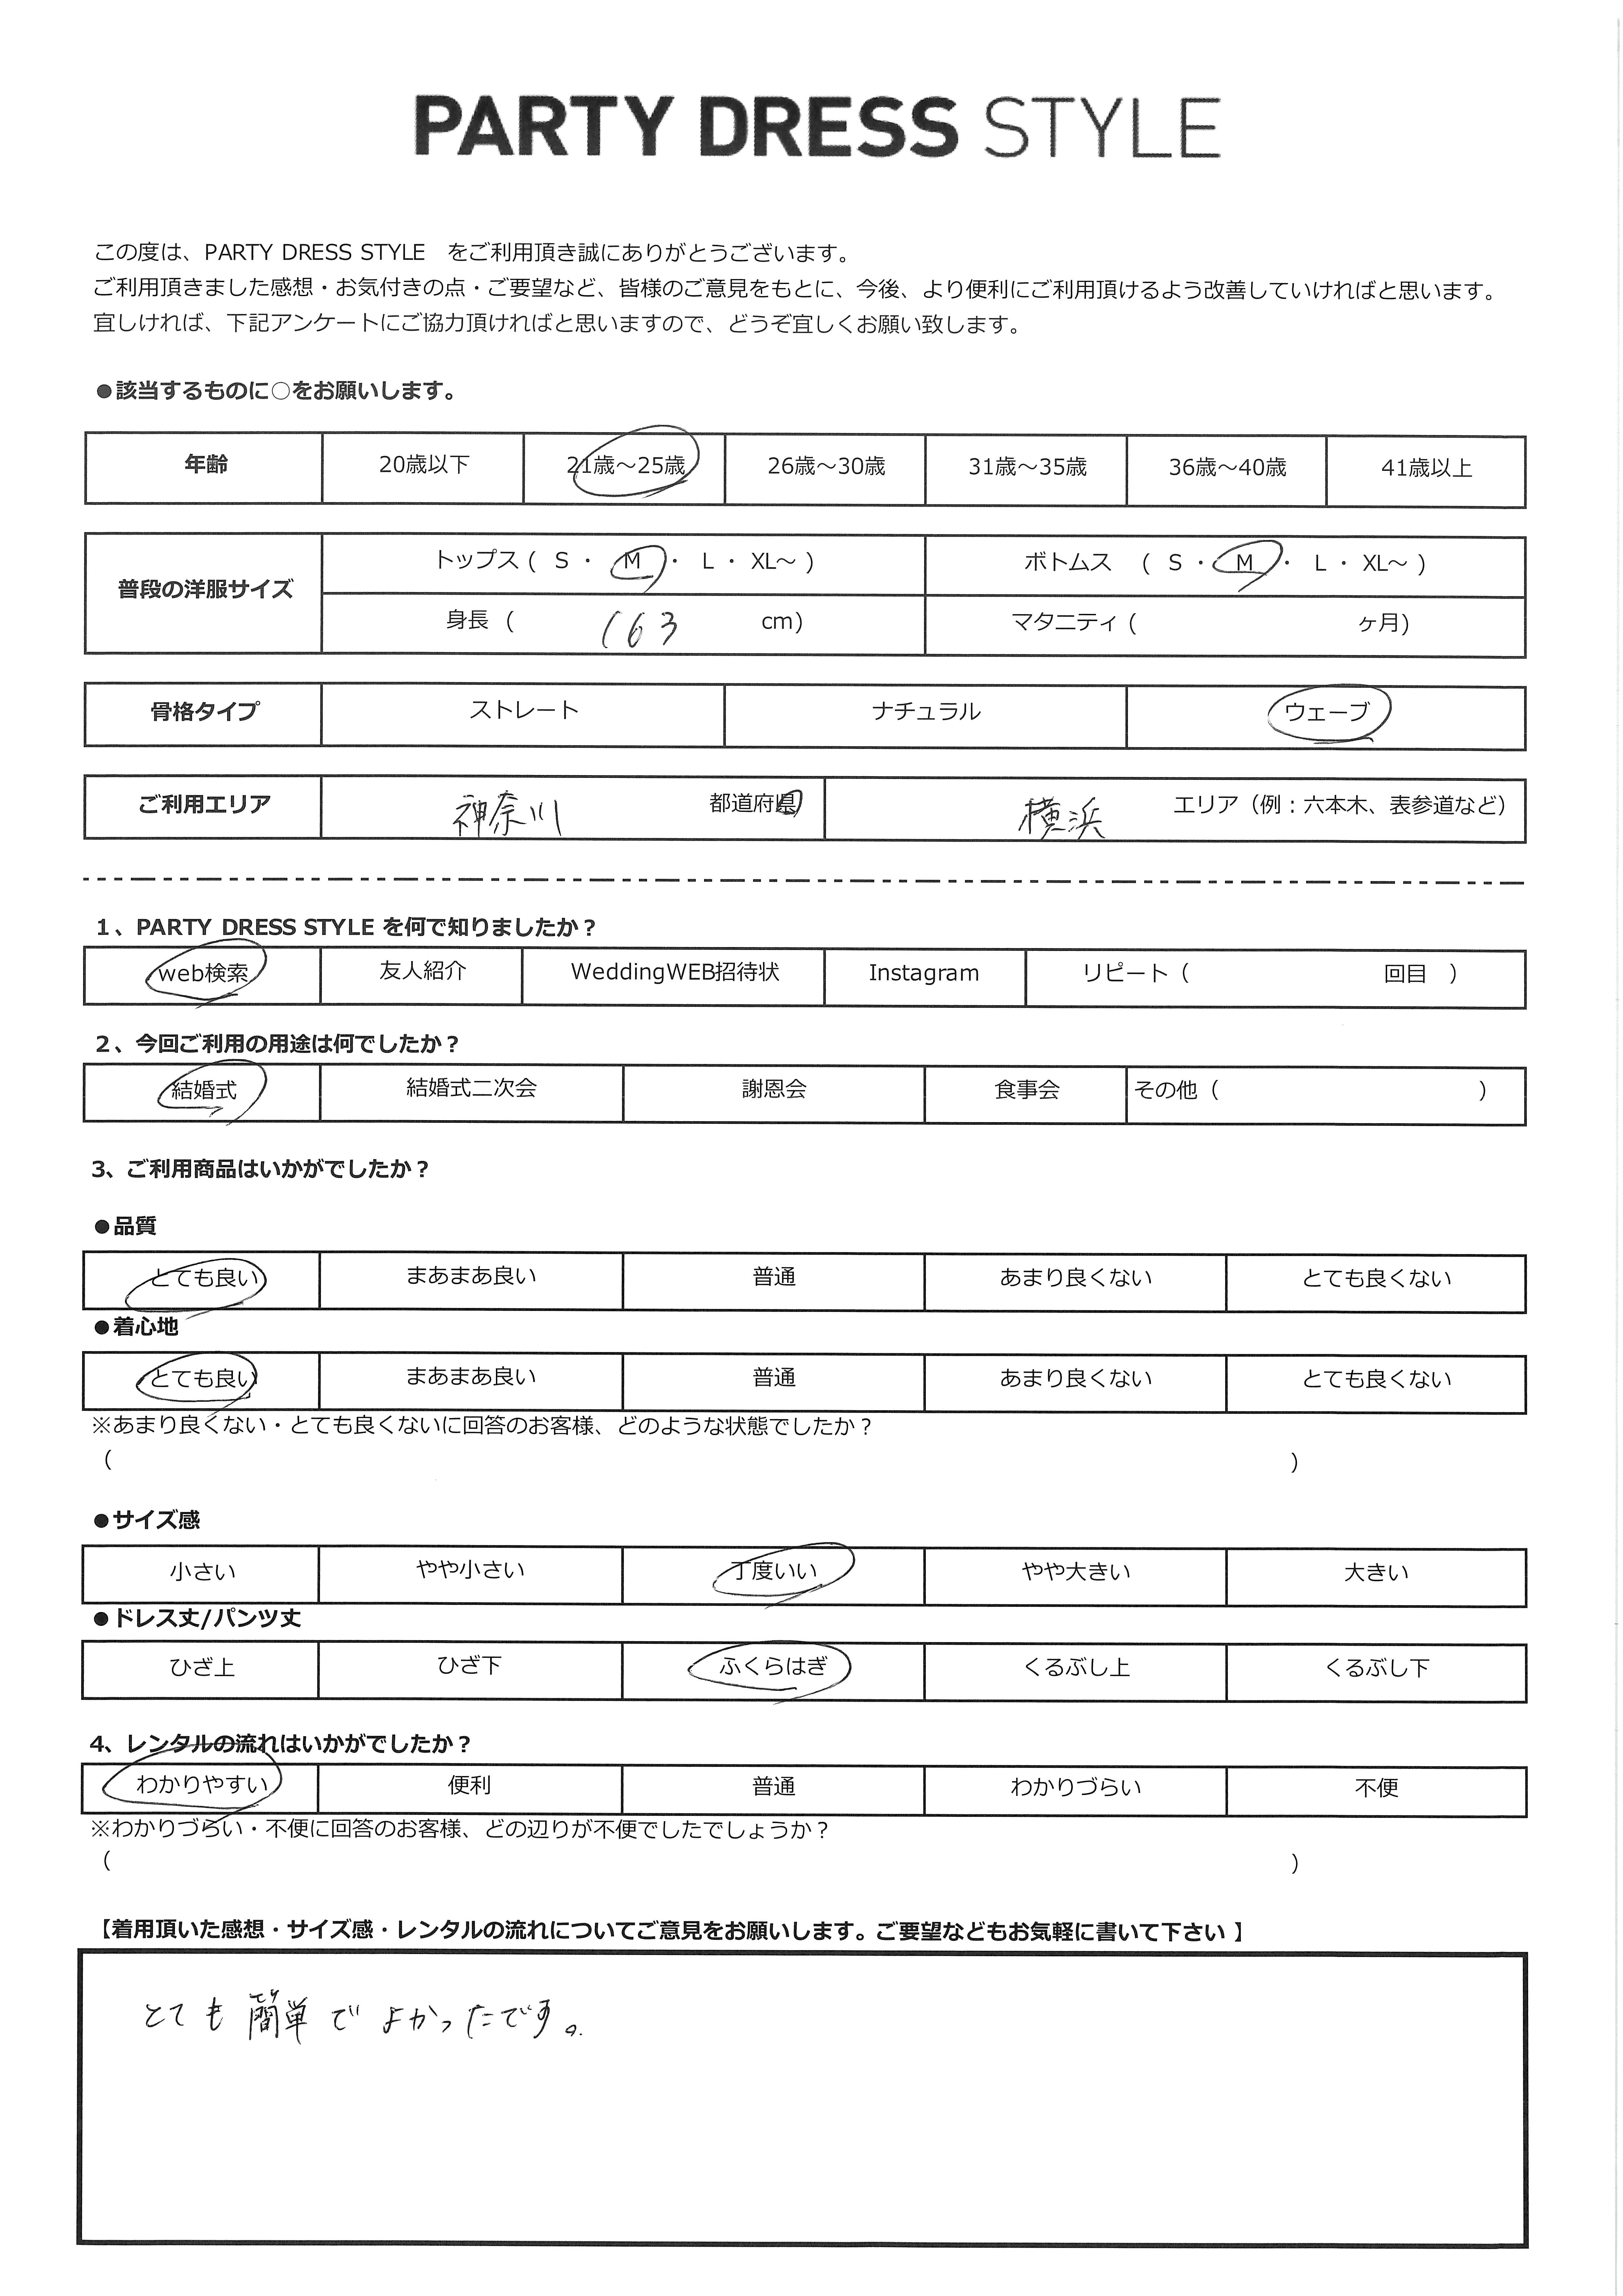 PARTY DRESS STYLE
この度は、PARTY DRESS STYLE　をご利用頂き誠にありがとうございます。
ご利用頂きました感想・お気付きの点・ご要望など、皆様のご意見をもとに、今後、より便利にご利用頂けるよう改善していければと思います。
宜しければ、下記アンケートにご協力頂ければと思いますので、どうぞ宜しくお願い致します。
●該当するものに○をお願いします。
年齢 20歳以下 21歳～25歳 26歳～30歳 31歳～35歳 36歳～40歳 41歳以上
普段の洋服サイズ トップス ( S ・ M ・ L ・ XL～ ) ボトムス ( S ・ M ・ L ・ XL～ )
身長 ( 163 cm) マタニティ ( ヶ月)
骨格タイプ ストレート ナチュラル ウェーブ
ご利用エリア 神奈川 都道府県 横浜 エリア（例：六本木、表参道など）
1、PARTY DRESS STYLE を何で知りましたか？
web検索 友人紹介 WeddingWEB招待状 Instagram リピート（ 回目 ）
2、今回ご利用の用途は何でしたか？
結婚式 結婚式二次会 謝恩会 食事会 その他（ ）
3、ご利用商品はいかがでしたか？
●品質
とても良い まあまあ良い 普通 あまり良くない とても良くない
●着心地
とても良い まあまあ良い 普通 あまり良くない とても良くない
※あまり良くない・とても良くないに回答のお客様、どのような状態でしたか？
（ ）
●サイズ感
小さい やや小さい 丁度いい やや大きい 大きい
●ドレス丈/パンツ丈
ひざ上 ひざ下 ふくらはぎ くるぶし上 くるぶし下
4、レンタルの流れはいかがでしたか？
わかりやすい 便利 普通 わかりづらい 不便
※わかりづらい・不便に回答のお客様、どの辺りが不便でしたでしょうか？
（ ）
【着用頂いた感想・サイズ感・レンタルの流れについてご意見をお願いします。ご要望などもお気軽に書いて下さい 】
とても簡単でよかったです。